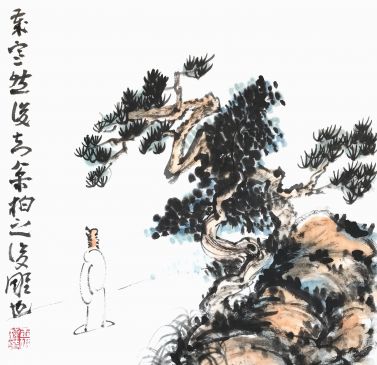 歲寒然後知松柏之後雕也